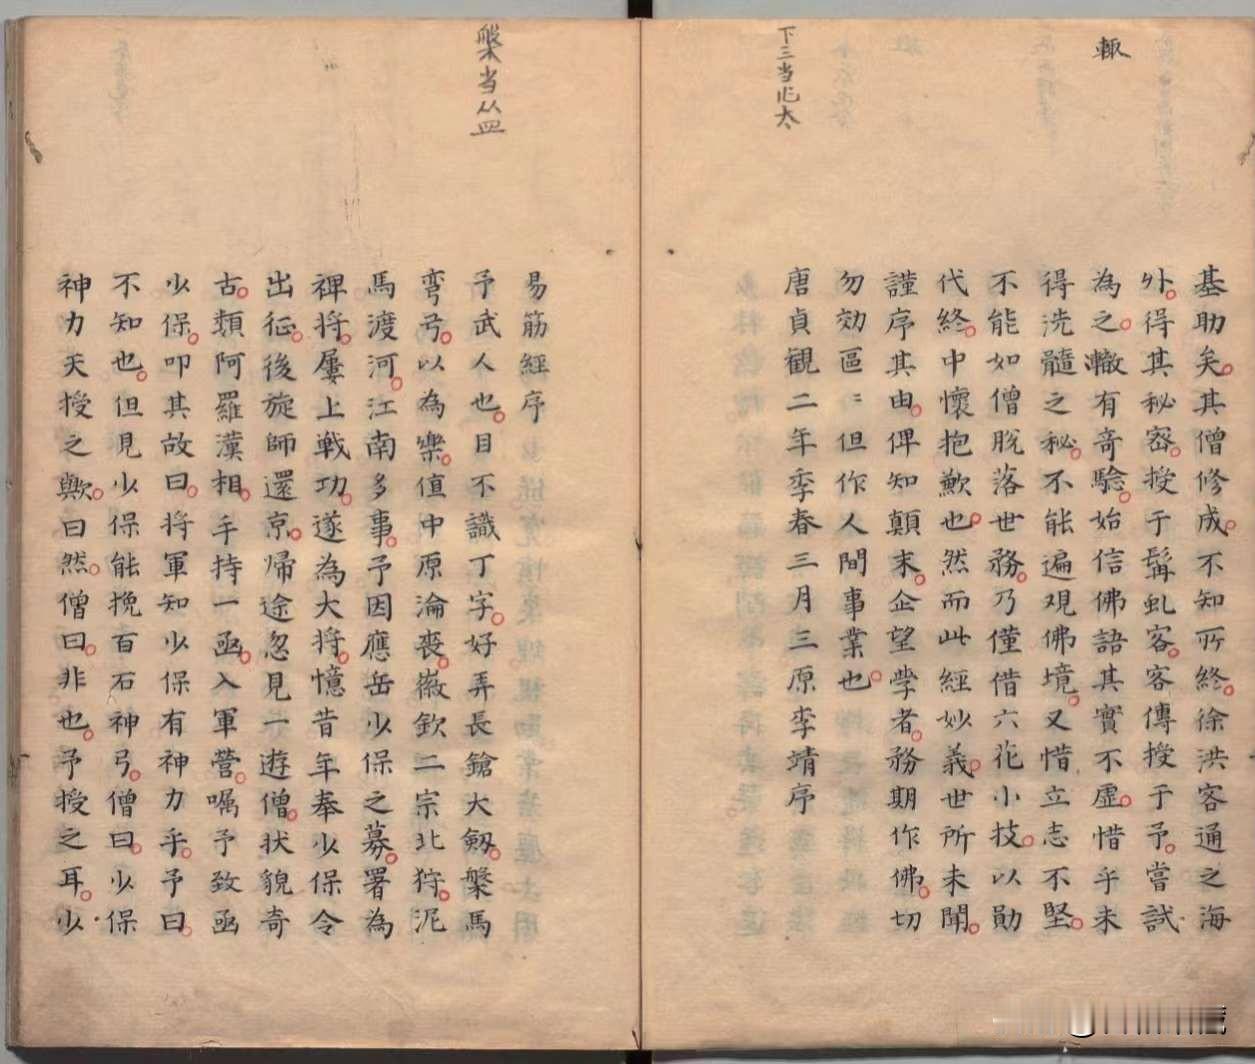 輙
下三当作太
基助矣其僧修成不知所終徐洪客通之海
外得其秘密授于髯虬客客傳授于予嘗試
為之轍有奇驗始信佛語其實不虛惜乎未
得洗髓之秘不能遍观佛境又惜立志不堅
不能如僧脫落世務乃僅借六花小技以勛
代終中懷抱歉也然而此經妙義世所未聞
謹序其由俾知顛末企望學者務期作佛切
勿効區〻但作人間事業也
唐貞観二年季春三月三原李靖序
槃当从皿
易筋經序
予武人也目不識丁字好弄長鎗大劔槃馬
弯弓以為樂值中原淪喪徽欽二宗北狩泥
馬渡河江南多事予因應岳少保之募署為
裨将屢上戰功遂為大将憶昔年奉少保令
出征後旋師還京歸途忽見一遊僧狀貌奇
古類阿羅漢相手持一函入軍營嘱予致函
少保叩其故曰将軍知少保有神力乎予曰
不知也但見少保能挽百石神弓僧曰少保
神力天授之歟曰然僧曰非也予授之耳少